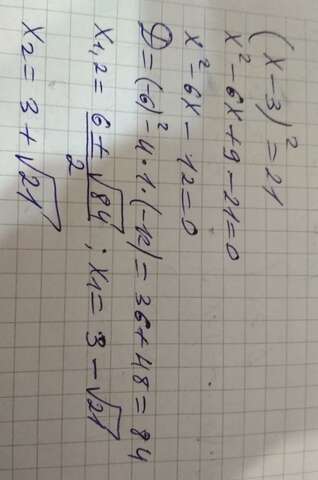 (x-3)² = 21
x² - 6x + 9 - 21 = 0
x² - 6x - 12 = 0
D = (-6)² - 4·1·(-12) = 36 + 48 = 84
x₁,₂ = (6 ± √84)/2 ; x₁ = 3 - √21
x₂ = 3 + √21